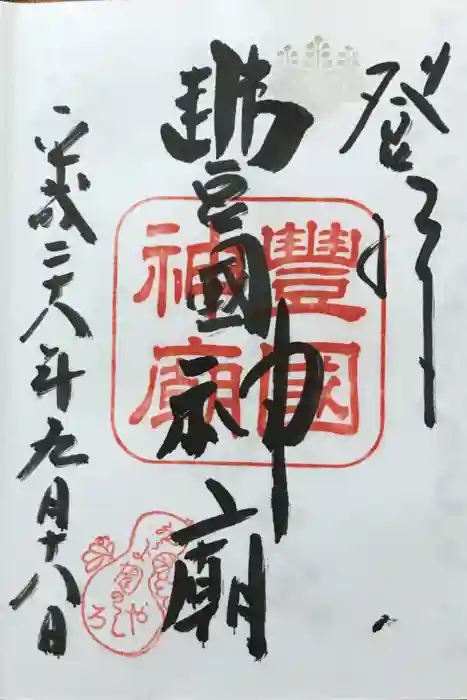 登拝
豐國神廟
豐國
神廟
平成二十八年九月十八日